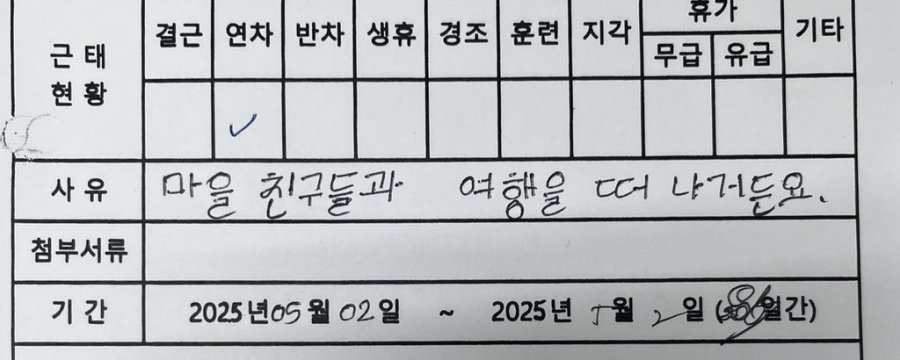 근태현황 결근 연차 반차 생휴 경조 훈련 지각 휴가 기타
무급 유급
✓
사유 마을 친구들과 여행을 떠나거든요.
첨부서류
기간 2025년 05월 02일 ~ 2025년 5월 2일 (월간)